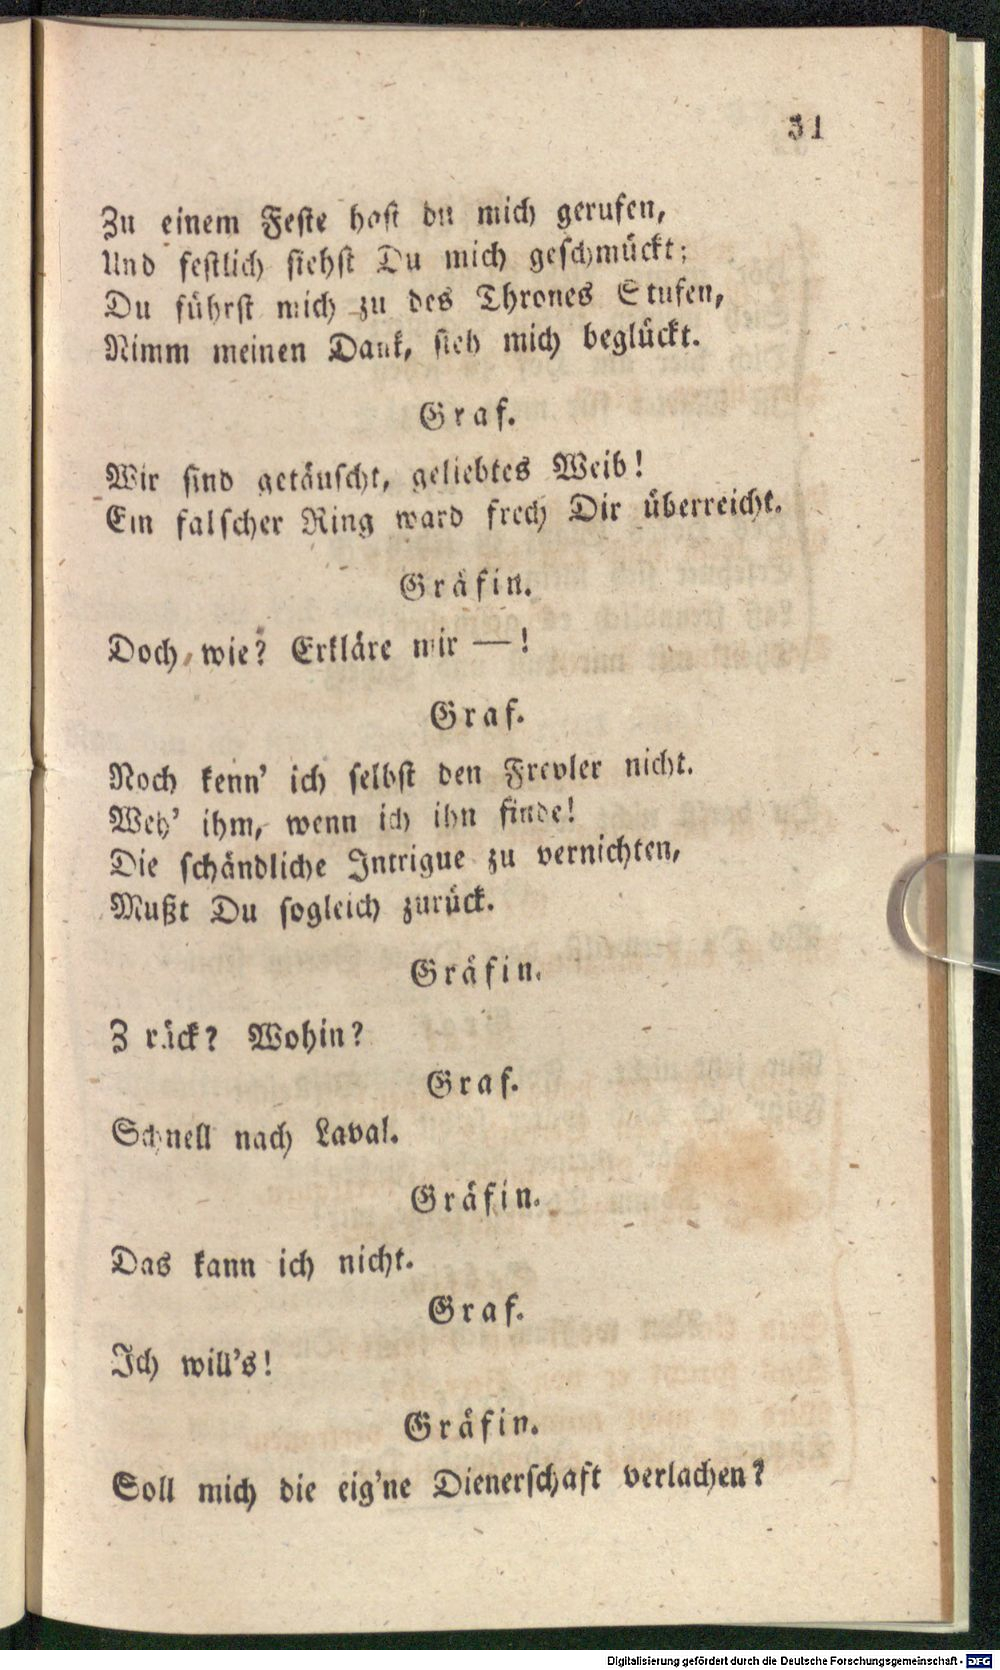 31
Zu einem Feste hast du mich gerufen,
Und festlich siehst Du mich geschmückt;
Du führst mich zu des Thrones Stufen,
Nimm meinen Dank, sieh mich beglückt.
Graf.
Wir sind getäuscht, geliebtes Weib!
Ein falscher Ring ward frech Dir überreicht.
Gräfin.
Doch, wie? Erkläre mir —!
Graf.
Noch kenn' ich selbst den Frevler nicht.
Weh' ihm, wenn ich ihn finde!
Die schändliche Intrigue zu vernichten,
Mußt Du sogleich zurück.
Gräfin.
Z rück? Wohin?
Graf.
Schnell nach Laval.
Gräfin.
Das kann ich nicht.
Graf.
Ich will's!
Gräfin.
Soll mich die eig'ne Dienerschaft verlachen?
Digitalisierung gefördert durch die Deutsche Forschungsgemeinschaft - DFG